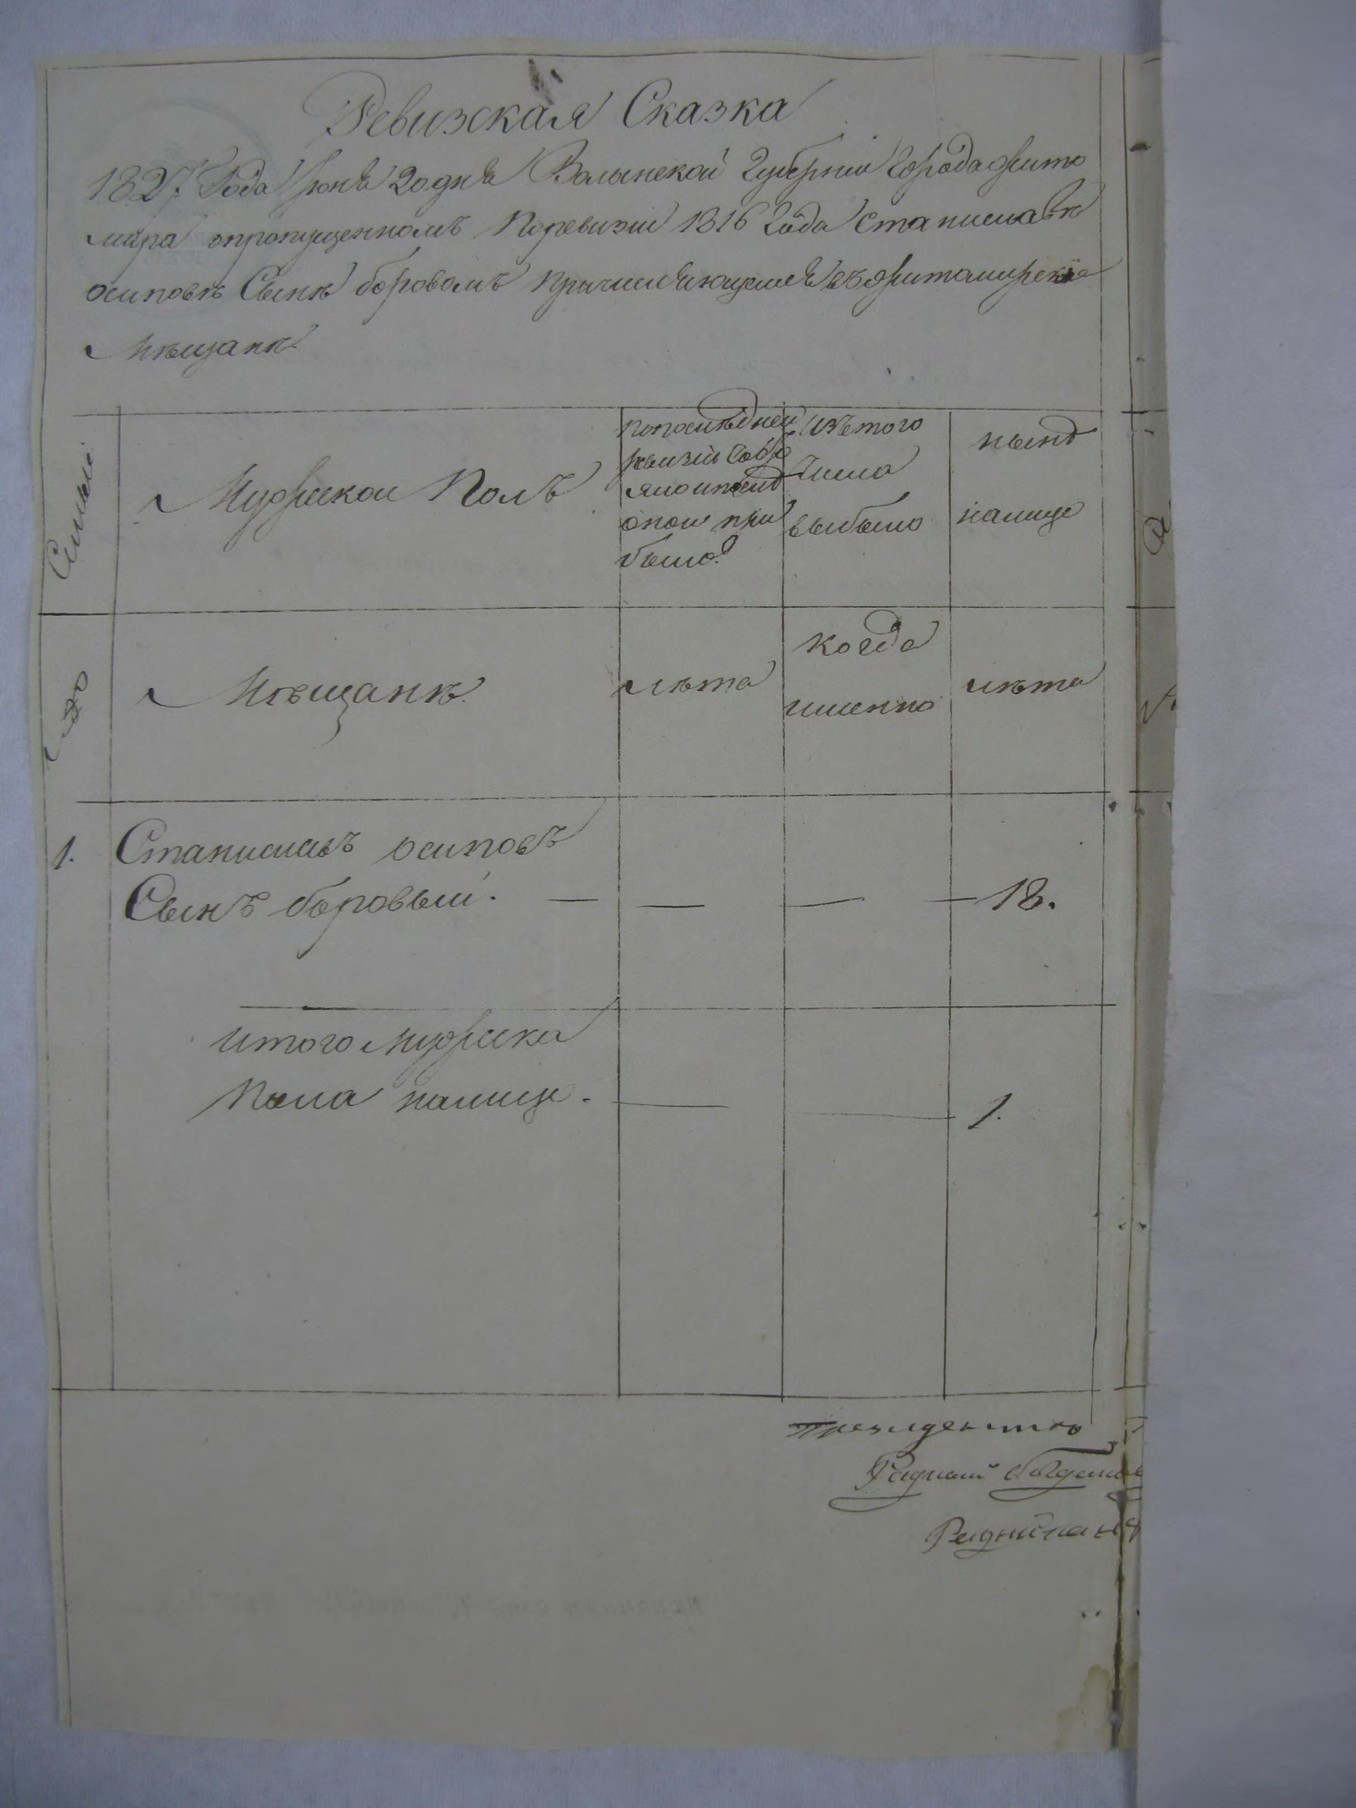 Ревизская Сказка
1827 Года Июня 20 дня Волынской Губернии Города Жито
мира опропущенномъ Поревизии 1816 Года Станиславѣ
осиповѣ Сынѣ боровомъ причисляющемся въ Житомирскіе
Мѣщане
Семьи
Мужескои Полъ
попослѣдней
ревизіи состо
яло ипослѣ
оной при
было
изътого
Числа
выбыло
нынѣ
налицо
Мѣщанѣ
лѣта
когда
именно
лѣта
1. Станиславъ осиповъ
Сынъ боровый. — — — — 18.
итого Мужеска
Пола налицо. — — 1.
Президентъ
Радный